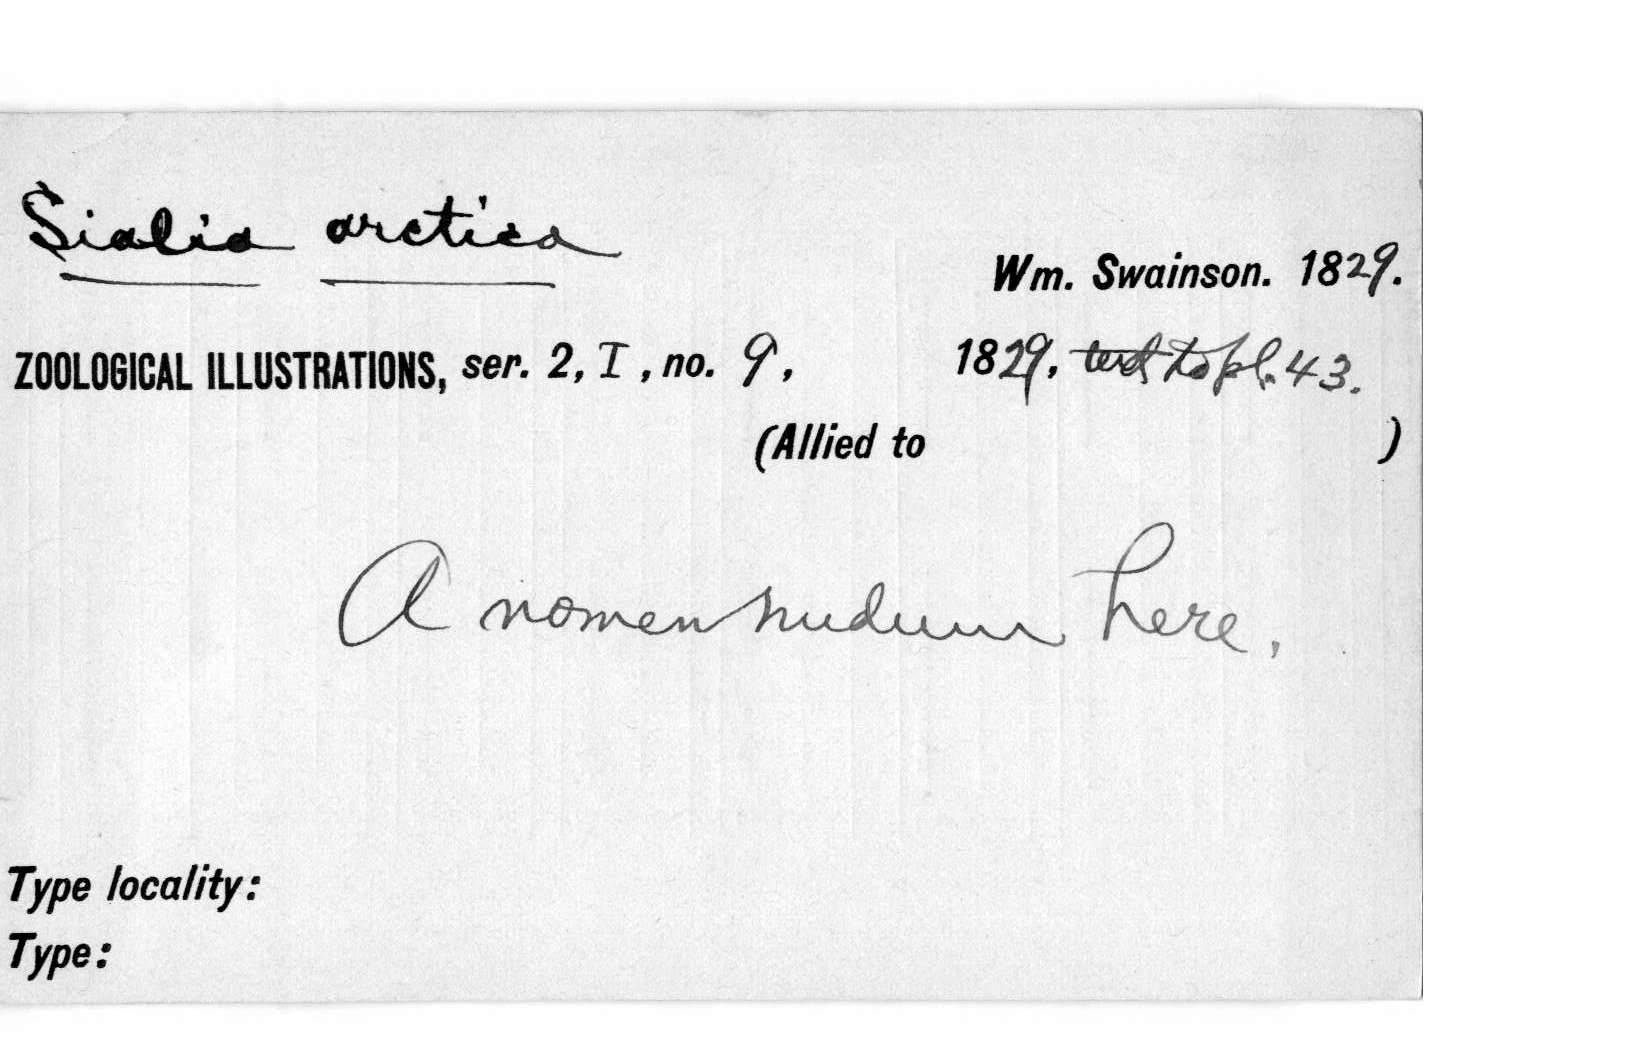 Sialia arctica
Wm. Swainson. 1829.
ZOOLOGICAL ILLUSTRATIONS, ser. 2, I, no. 9, 1829, text to pl. 43.
(Allied to )
A nomen nudum here.
Type locality:
Type: